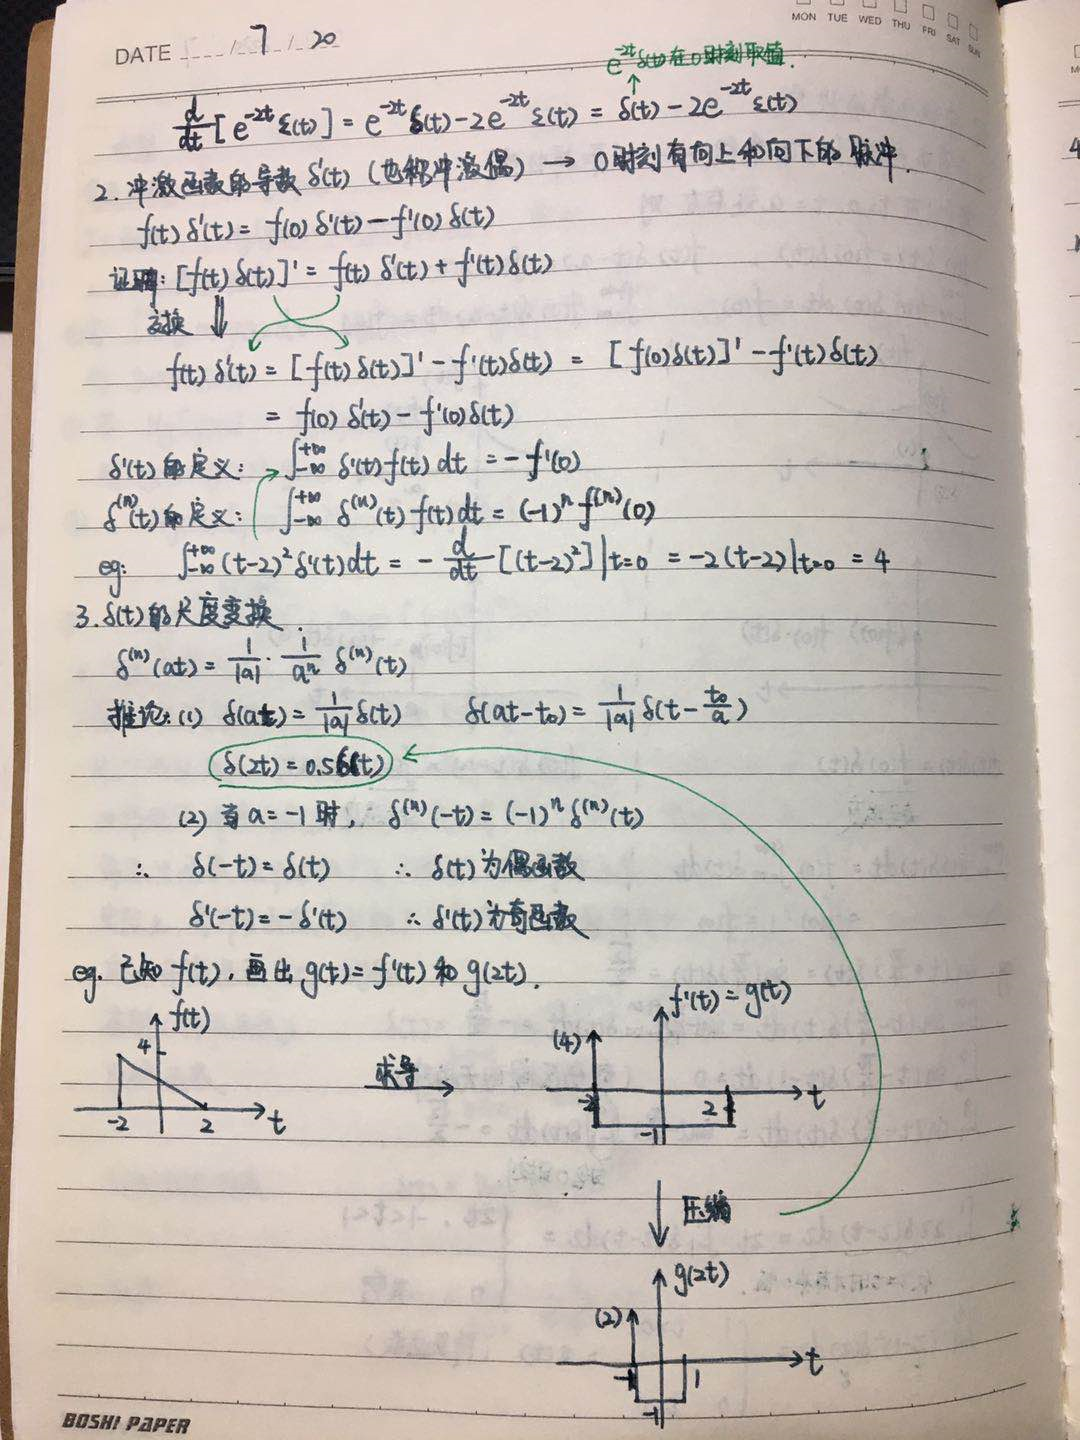 MON TUE WED THU FRI SAT SUN
DATE 7/20
e^{-2t}δ(t)在0时刻取值.
d/dt [e^{-2t}ε(t)] = e^{-2t}δ(t) - 2e^{-2t}ε(t) = δ(t) - 2e^{-2t}ε(t)
2. 冲激函数的导数 δ'(t) (也称冲激偶) → 0时刻有向上和向下的脉冲.
f(t)δ'(t) = f(0)δ'(t) - f'(0)δ(t)
证明: [f(t)δ(t)]' = f(t)δ'(t) + f'(t)δ(t)
变换 ⇓
f(t)δ'(t) = [f(t)δ(t)]' - f'(t)δ(t) = [f(0)δ(t)]' - f'(t)δ(t)
= f(0)δ'(t) - f'(0)δ(t)
δ'(t)的定义: ∫_{-∞}^{+∞} δ'(t)f(t)dt = -f'(0)
δ^{(n)}(t)的定义: ∫_{-∞}^{+∞} δ^{(n)}(t)f(t)dt = (-1)^n f^{(n)}(0)
eg: ∫_{-∞}^{+∞} (t-2)^2 δ'(t)dt = - d/dt [(t-2)^2]|t=0 = -2(t-2)|t=0 = 4
3. δ(t)的尺度变换.
δ^{(n)}(at) = 1/|a| · 1/a^n δ^{(n)}(t)
推论: (1) δ(at) = 1/|a| δ(t) δ(at-t₀) = 1/|a| δ(t - t₀/a)
δ(2t) = 0.5δ(t)
(2) 当a=-1时, δ^{(n)}(-t) = (-1)^n δ^{(n)}(t)
∴ δ(-t) = δ(t) ∴ δ(t)为偶函数
δ'(-t) = -δ'(t) ∴ δ'(t)为奇函数
eg. 已知f(t), 画出g(t) = f'(t)和g(2t).
f(t)
4
-2 2 t
求导
f'(t) = g(t)
(4)
-2 2 t
-1
压缩
g(2t)
(2)
-1 1 t
-1
BOSHI PAPER